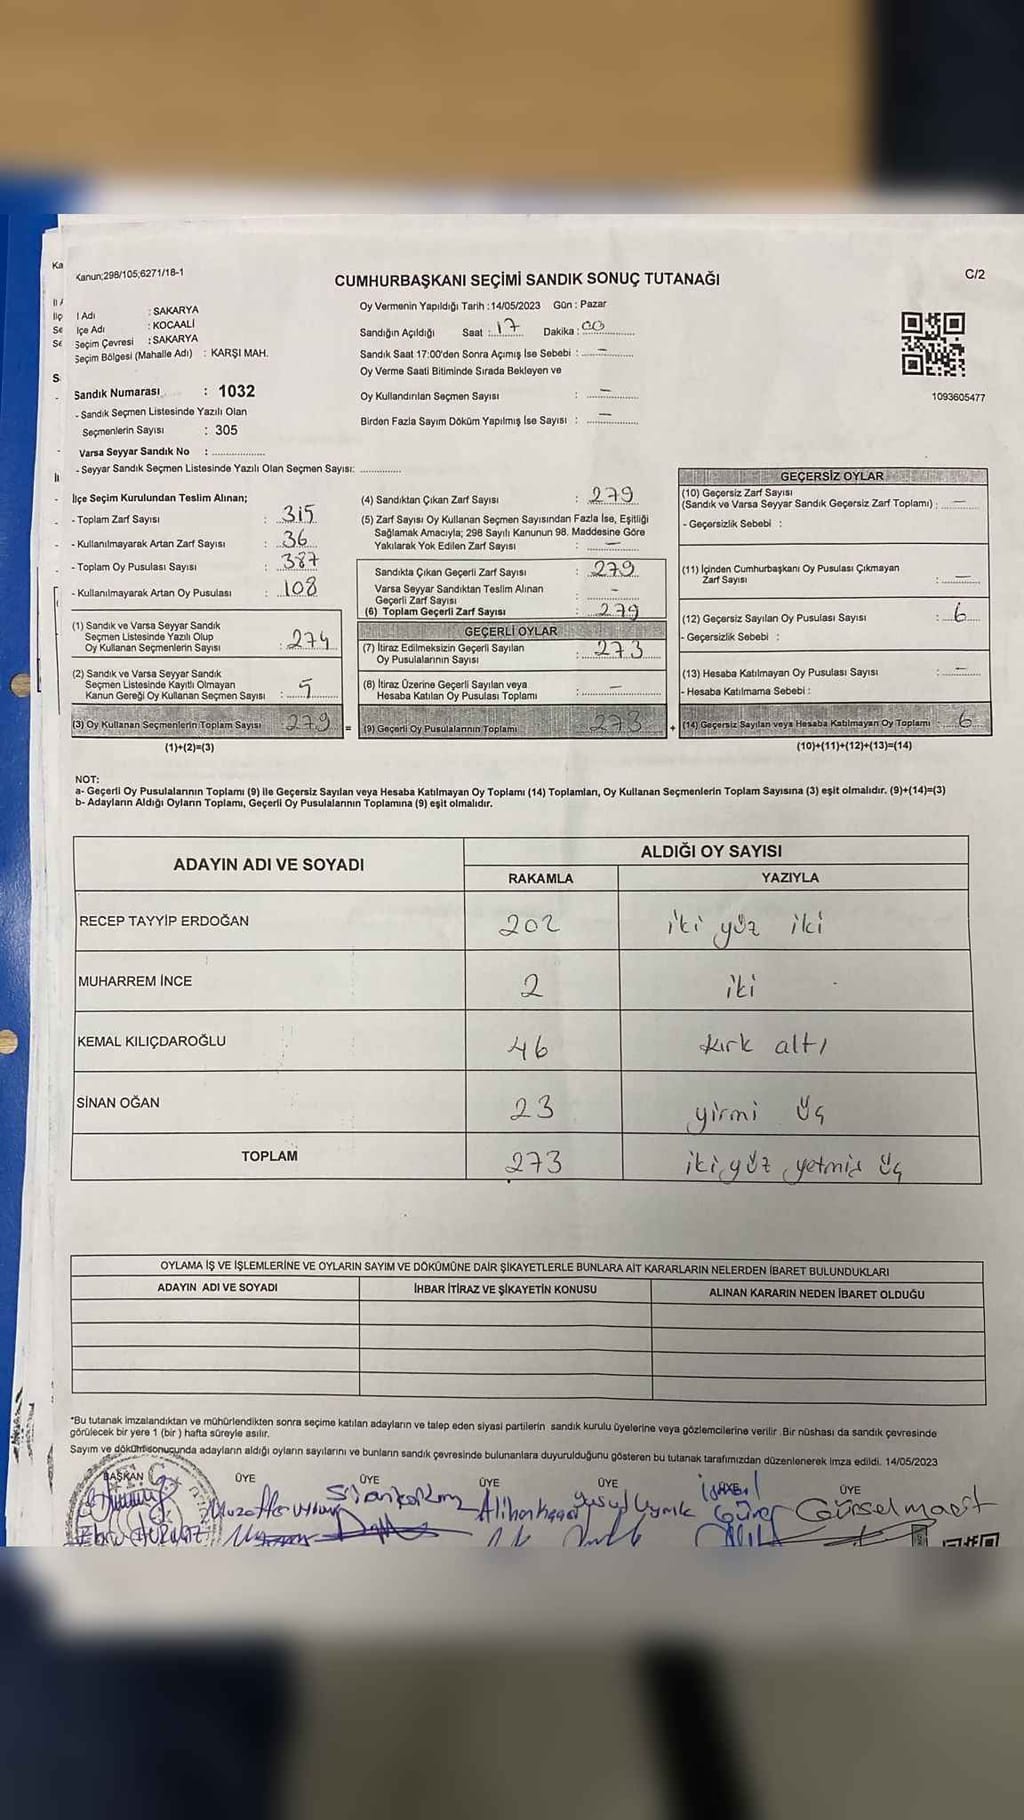 Kanun;298/105;6271/18-1
C/2
CUMHURBAŞKANI SEÇİMİ SANDIK SONUÇ TUTANAĞI
Oy Vermenin Yapıldığı Tarih :14/05/2023 Gün : Pazar
l Adı : SAKARYA
İlçe Adı : KOCAALİ
Seçim Çevresi : SAKARYA
Seçim Bölgesi (Mahalle Adı) : KARŞI MAH.
Sandığın Açıldığı Saat : 17 Dakika : 00
Sandık Saat 17:00'den Sonra Açımış İse Sebebi : —
Oy Verme Saati Bitiminde Sırada Bekleyen ve
Oy Kullandırılan Seçmen Sayısı : —
Birden Fazla Sayım Döküm Yapılmış İse Sayısı : —
1093605477
Sandık Numarası : 1032
- Sandık Seçmen Listesinde Yazılı Olan
Seçmenlerin Sayısı : 305
Varsa Seyyar Sandık No :
- Seyyar Sandık Seçmen Listesinde Yazılı Olan Seçmen Sayısı:
İlçe Seçim Kurulundan Teslim Alınan;
- Toplam Zarf Sayısı : 315
- Kullanılmayarak Artan Zarf Sayısı : 36
- Toplam Oy Pusulası Sayısı : 387
- Kullanılmayarak Artan Oy Pusulası : 108
(1) Sandık ve Varsa Seyyar Sandık
Seçmen Listesinde Yazılı Olup
Oy Kullanan Seçmenlerin Sayısı : 274
(2) Sandık ve Varsa Seyyar Sandık
Seçmen Listesinde Kayıtlı Olmayan
Kanun Gereği Oy Kullanan Seçmen Sayısı : 5
(3) Oy Kullanan Seçmenlerin Toplam Sayısı 279 =
(1)+(2)=(3)
(4) Sandıktan Çıkan Zarf Sayısı : 279
(5) Zarf Sayısı Oy Kullanan Seçmen Sayısından Fazla İse, Eşitliği
Sağlamak Amacıyla; 298 Sayılı Kanunun 98. Maddesine Göre
Yakılarak Yok Edilen Zarf Sayısı : —
Sandıkta Çıkan Geçerli Zarf Sayısı : 279
Varsa Seyyar Sandıktan Teslim Alınan
Geçerli Zarf Sayısı : -
(6) Toplam Geçerli Zarf Sayısı : 279
GEÇERLİ OYLAR
(7) İtiraz Edilmeksizin Geçerli Sayılan
Oy Pusulalarının Sayısı : 273
(8) İtiraz Üzerine Geçerli Sayılan veya
Hesaba Katılan Oy Pusulası Toplamı : —
(9) Geçerli Oy Pusulalarının Toplamı 273 +
GEÇERSİZ OYLAR
(10) Geçersiz Zarf Sayısı
(Sandık ve Varsa Seyyar Sandık Geçersiz Zarf Toplamı) : —
- Geçersizlik Sebebi :
(11) İçinden Cumhurbaşkanı Oy Pusulası Çıkmayan
Zarf Sayısı : —
(12) Geçersiz Sayılan Oy Pusulası Sayısı : 6
- Geçersizlik Sebebi :
(13) Hesaba Katılmayan Oy Pusulası Sayısı : —
- Hesaba Katılmama Sebebi :
(14) Geçersiz Sayılan veya Hesaba Katılmayan Oy Toplamı : 6
(10)+(11)+(12)+(13)=(14)
NOT:
a- Geçerli Oy Pusulalarının Toplamı (9) ile Geçersiz Sayılan veya Hesaba Katılmayan Oy Toplamı (14) Toplamları, Oy Kullanan Seçmenlerin Toplam Sayısına (3) eşit olmalıdır. (9)+(14)=(3)
b- Adayların Aldığı Oyların Toplamı, Geçerli Oy Pusulalarının Toplamına (9) eşit olmalıdır.
ADAYIN ADI VE SOYADI ALDIĞI OY SAYISI
RAKAMLA YAZIYLA
RECEP TAYYİP ERDOĞAN 202 iki yüz iki
MUHARREM İNCE 2 iki
KEMAL KILIÇDAROĞLU 46 kırk altı
SİNAN OĞAN 23 yirmi üç
TOPLAM 273 iki yüz yetmiş üç
OYLAMA İŞ VE İŞLEMLERİNE VE OYLARIN SAYIM VE DÖKÜMÜNE DAİR ŞİKAYETLERLE BUNLARA AİT KARARLARIN NELERDEN İBARET BULUNDUKLARI
ADAYIN ADI VE SOYADI İHBAR İTİRAZ VE ŞİKAYETİN KONUSU ALINAN KARARIN NEDEN İBARET OLDUĞU
*Bu tutanak imzalandıktan ve mühürlendikten sonra seçime katılan adayların ve talep eden siyasi partilerin sandık kurulu üyelerine veya gözlemcilerine verilir .Bir nüshası da sandık çevresinde
görülecek bir yere 1 (bir ) hafta süreyle asılır.
Sayım ve döküm sonucunda adayların aldığı oyların sayılarını ve bunların sandık çevresinde bulunanlara duyurulduğunu gösteren bu tutanak tarafımızdan düzenlenerek imza edildi. 14/05/2023
BAŞKAN ÜYE ÜYE ÜYE ÜYE ÜYE
Gürsel